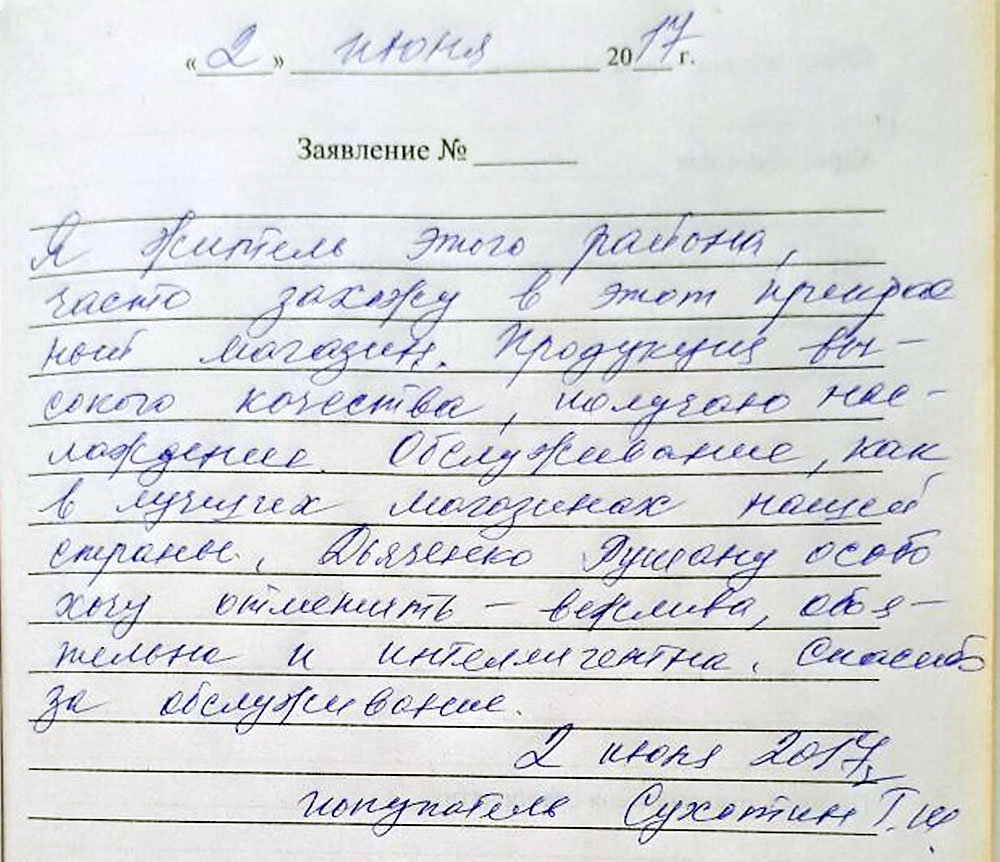 « 2 » июня 2017 г.
Заявление №
Я житель этого района,
часто захожу в этот прекрас
ный магазин. Продукция вы-
сокого качества, получаю нас-
лаждение. Обслуживание, как
в лучших магазинах нашей
страны. Дьяченко особо
хочу отметить – вежлива, обая-
тельна и интеллигентна. Спасибо
за обслуживание.
2 июня 2017г
покупатель Сухотин